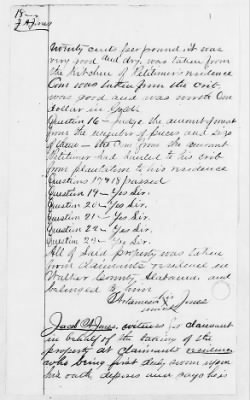 twenty cents per pound it was
very good and dry, was taken
from the kitchen of Petitioner's residence
Corn was taken from the crib
was good and was worth One
dollar in Gold
Question 16 - Judge the amount
from the number of pieces and size
of - the Corn from the amount
Petitioner had hauled to his crib
from plantation to his residence
Questions 17 & 18 passed
Question 19 - Yes Sir.
Question 20 - Yes Sir.
Question 21 - Yes Sir.
Question 22 - Yes Sir.
Question 23 - Yes Sir.
All of said property was taken
from claimants residence in
Walker County, Alabama, and
belonged to him
his
Jones
mark
Jones, witness for claimant
in behalf of the taking of the
property at claimants residence
who being first duly sworn upon
his oath, deposes and says he is